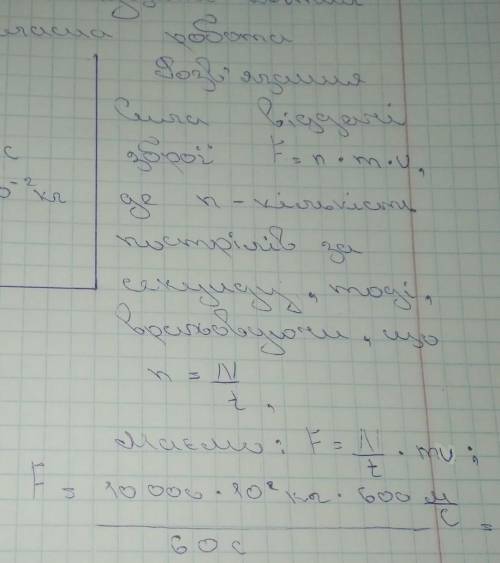 робота
Розв'язання
Сила віддачі
с
зброї F = n · m · v,
0⁻² кг
де n - кількість
пострілів за
секунду, тоді,
враховуючи, що
n = N/t,
Маємо: F = N/t · mv;
F = 10 000 · 10² кг · 600 м/с / 60 с =